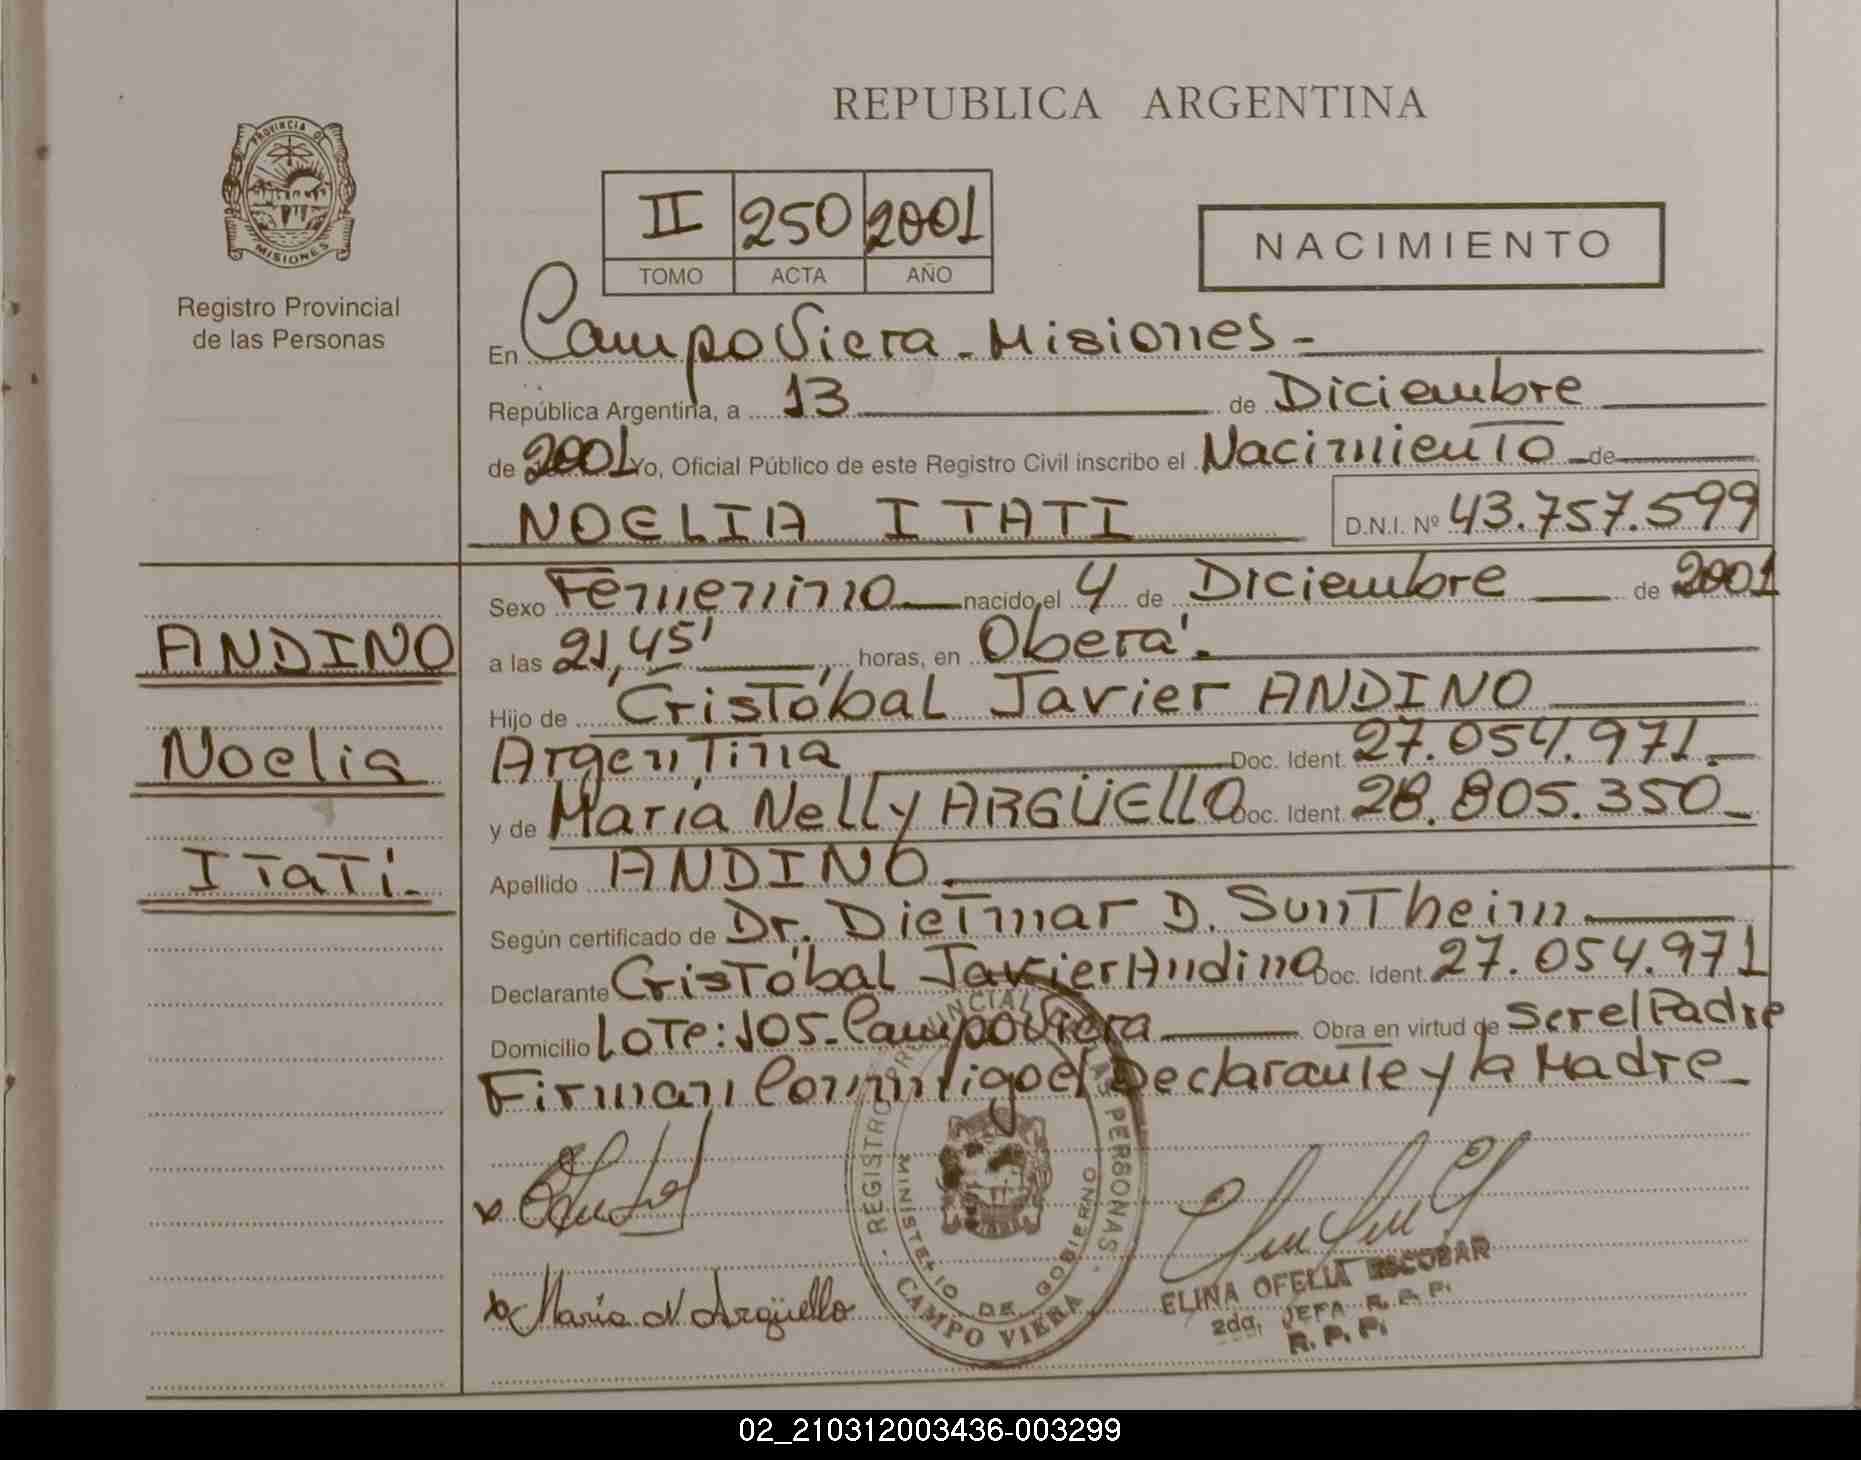 REPUBLICA ARGENTINA
PROVINCIA DE
MISIONES
Registro Provincial
de las Personas
II 250 2001
TOMO ACTA AÑO
NACIMIENTO
En Campo Viera - Misiones -
República Argentina, a 13 de Diciembre
de 2001 Yo, Oficial Público de este Registro Civil inscribo el Nacimiento de
NOELIA ITATI D.N.I. Nº 43.757.599
Sexo Femenino nacido el 4 de Diciembre de 2001
ANDINO
a las 21,45' horas, en Oberá.
Hijo de Cristóbal Javier ANDINO
Noelia
Argentina Doc. Ident. 27.054.971.-
y de María Nelly ARGÜELLO Doc. Ident. 28.805.350-
Itatí.
Apellido ANDINO.
Según certificado de Dr. Dietmar D. Suntheim.
Declarante Cristóbal Javier Andino Doc. Ident. 27.054.971
Domicilio Lote: 105- Campo Viera Obra en virtud de Ser el Padre
Firman Conmigo el Declarante y la Madre-
REGISTRO PROVINCIAL DE LAS PERSONAS
MINISTERIO DE GOBIERNO
CAMPO VIERA
x María N Argüello
ELINA OFELIA ESCOBAR
2da. JEFA R. P. P.
R. P. P.
02_210312003436-003299